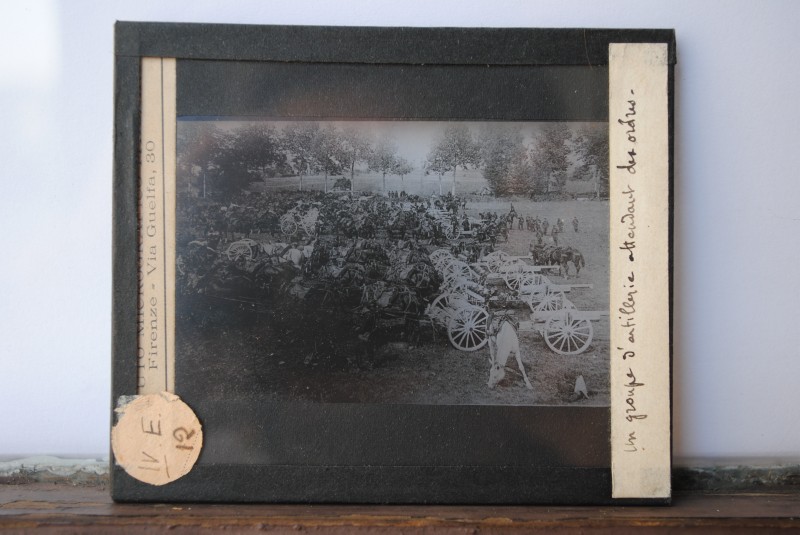 Firenze - Via Guelfa, 30
IV E
12
Un groupe d'artillerie attendant des ordres -